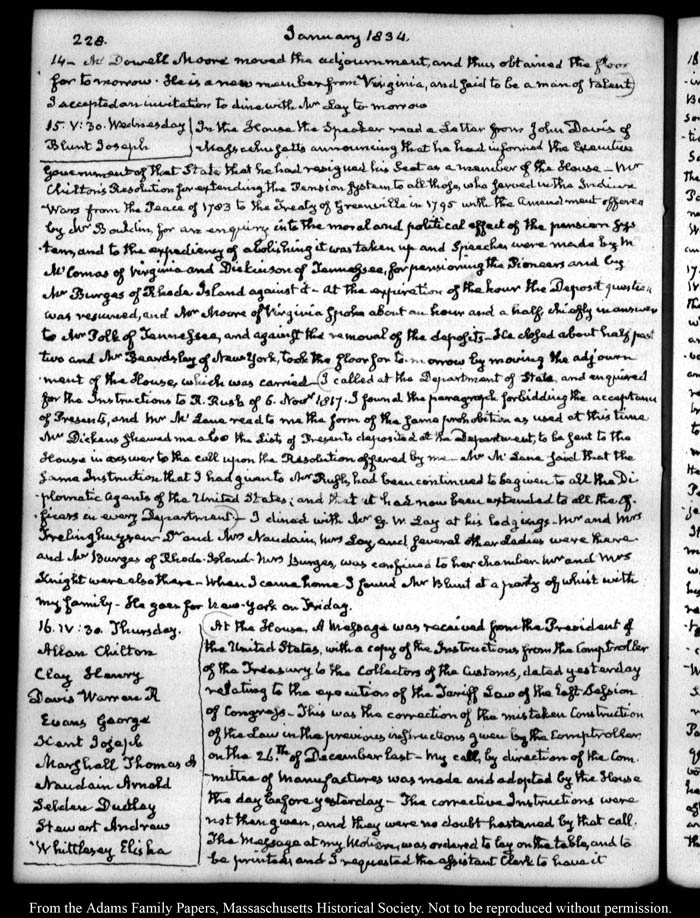 228.
January 1834.
14- Mr Dowell Moore moved the adjournment, and thus obtained the floor
for to morrow. He is a new member from Virginia, and said to be a man of talent
I accepted an invitation to dine with Mr Lay to morrow
15. V:30. Wednesday
Blunt Joseph
In the House the Speaker read a Letter from John Davis of
Massachusetts announcing that he had informed the Executive
Government of that State that he had resigned his Seat as a member of the House - Mr
Chilton's Resolution for extending the Pension System to all those, who served in the Indian
Wars from the Peace of 1783 to the Treaty of Greenville in 1795 with the Amendment offered
by Mr Bouldin, for an enquiry into the moral and political effect of the pension sys
-tem, and to the expediency of abolishing it was taken up and Speeches were made by Mr
McComas of Virginia and Dickinson of Tennessee, for pensioning the Pioneers and by
Mr Burges of Rhode Island against it - At the expiration of the hour the Deposit question
was resumed, and Mr Moore of Virginia spoke about an hour and a half, chiefly in answer
to Mr Polk of Tennessee, and against the removal of the deposits - He closed about half past
two and Mr Beardsley of New York, took the floor for to-morrow by moving the adjourn
-ment of the House, which was carried - I called at the Department of State, and enquired
for the Instructions to R. Rush of 6. Novr 1817. I found the paragraph forbidding the acceptance
of Presents, and Mr McLane read to me the form of the same prohibition as used at this time
Mr Dickens shewed me also the Lists of Presents deposited at the Department, to be sent to the
House in answer to the call upon the Resolution offered by me - Mr McLane said that the
same Instruction that I had given to Mr Rush, had been continued to be given to all the Di
-plomatic Agents of the United States; and that it has now been extended to all the of
-ficers in every Department - I dined with Mr G. W. Lay at his lodgings - Mr and Mrs
Frelinghuysen - Dr and Mrs Naudain, Mrs Lay, and several other Ladies were there
and Mr Burges of Rhode-Island - Mrs Burges, was confined to her chamber. Mr and Mrs
Knight were also there - When I came home I found Mr Blunt at a party of whist with
my family - He goes for New-York on Friday.
16. IV:30. Thursday.
Allan Chilton
Clay Henry
Davis Warren R
Evans George
Kent Joseph
Marshall Thomas A
Naudain Arnold
Selden Dudley
Stewart Andrew
Whittlesey Elisha
At the House, A Message was received from the President of
the United States, with a copy of the Instructions from the Comptroller
of the Treasury to the Collectors of the Customs, dated yesterday
relating to the execution of the Tariff Law of the last Session
of Congress - This was the correction of the mistaken Construction
of the Law in the previous instructions given by the Comptroller
on the 26.th of December last - My call, by direction of the Com-
-mittee of Manufactures was made and adopted by the House
the day before yesterday - The corrective Instructions were
not then given, and they were no doubt hastened by that call.
The Message at my motion, was ordered to lay on the table, and to
be printed; and I requested the assistant Clerk to have it
From the Adams Family Papers, Massachusetts Historical Society. Not to be reproduced without permission.